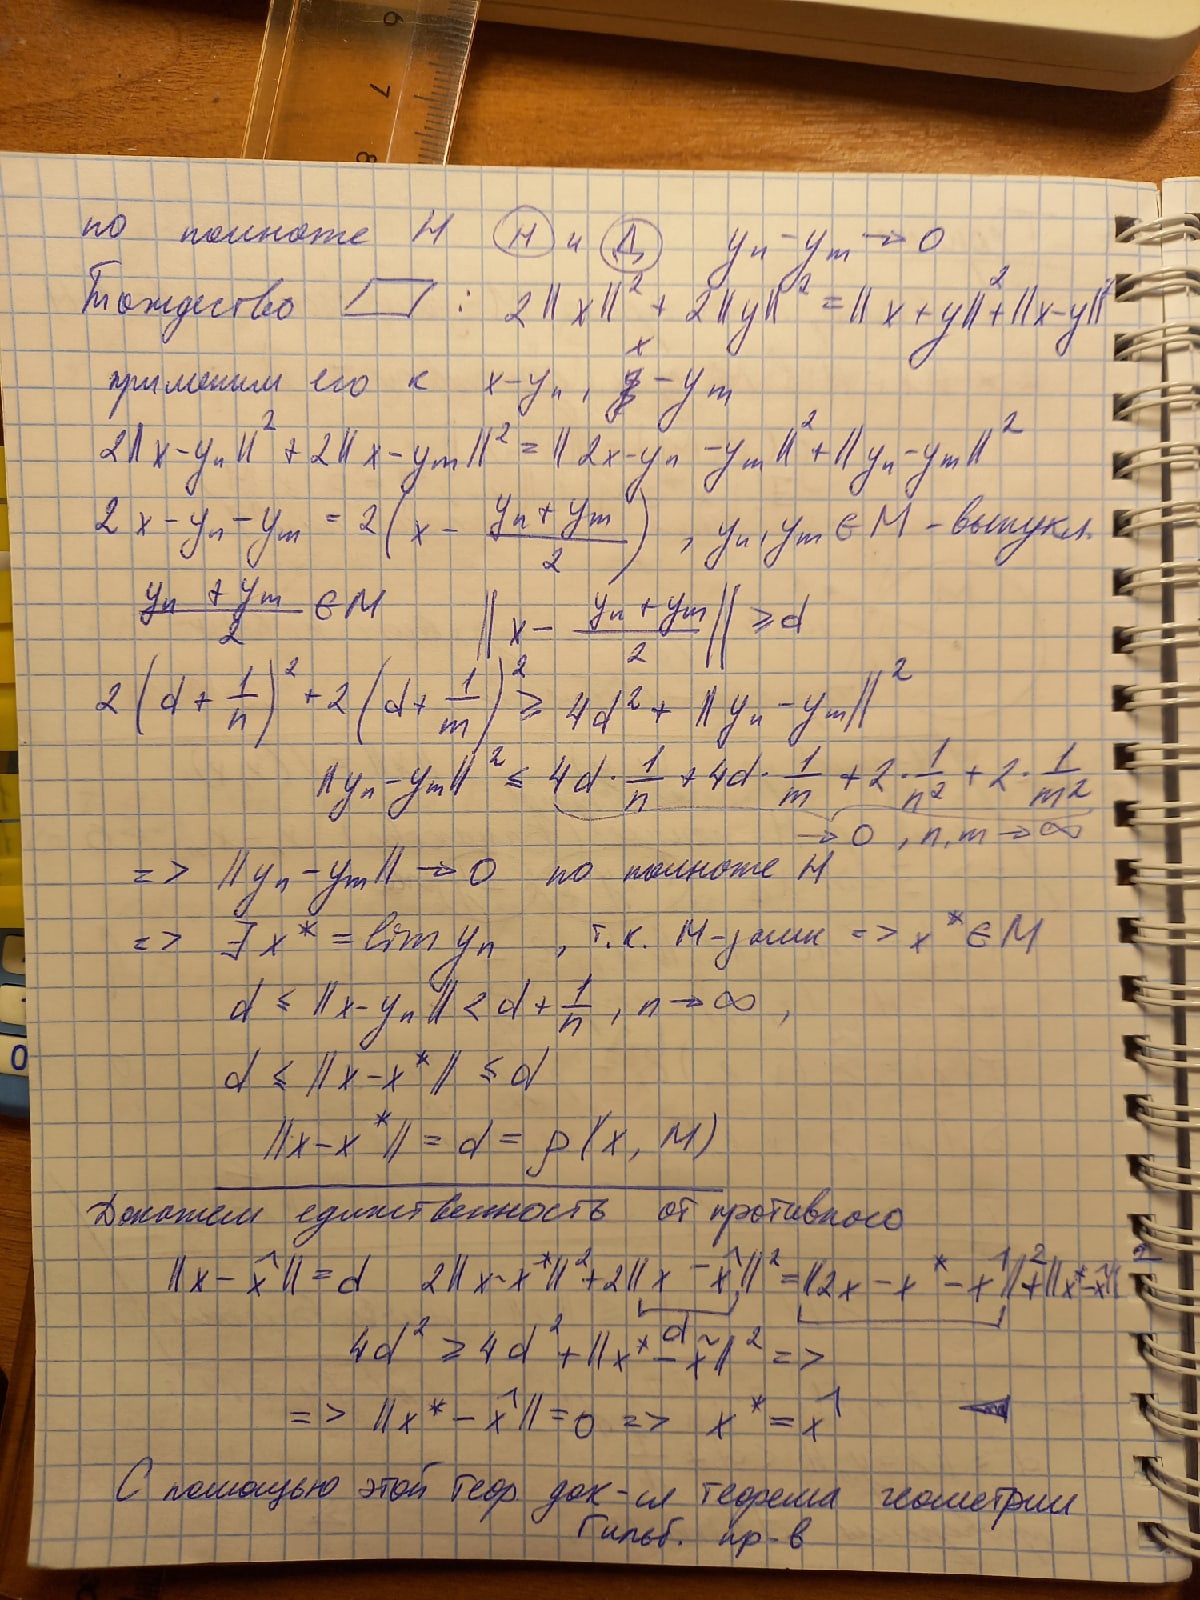 6
7
8
0
по полноте H (Н) и (Д) yₙ - yₘ → 0
Тождество ▱ : 2||x||² + 2||y||² = ||x+y||² + ||x-y||²
x
применим его к x - yₙ, - yₘ
2||x - yₙ||² + 2||x - yₘ||² = ||2x - yₙ - yₘ||² + ||yₙ - yₘ||²
2x - yₙ - yₘ = 2(x - (yₙ + yₘ)/2), yₙ, yₘ ∈ M - выпукл.
(yₙ + yₘ)/2 ∈ M ||x - (yₙ + yₘ)/2|| ⩾ d
2(d + 1/n)² + 2(d + 1/m)² ⩾ 4d² + ||yₙ - yₘ||²
||yₙ - yₘ||² ≤ 4d · 1/n + 4d · 1/m + 2 · 1/n² + 2 · 1/m²
→ 0, n, m → ∞
=> ||yₙ - yₘ|| → 0 по полноте H
=> ∃ x* = lim yₙ, т.к. M - замкн => x* ∈ M
d ≤ ||x - yₙ|| < d + 1/n, n → ∞,
d ≤ ||x - x*|| ≤ d
||x - x*|| = d = ρ(x, M)
Докажем единственность от противного
||x - x̂|| = d 2||x - x*||² + 2||x - x̂||² = ||2x - x* - x̂||² + ||x* - x̂||²
d
4d² ⩾ 4d² + ||x* - x̃||² =>
=> ||x* - x̂|| = 0 => x* = x̂ ◀
С помощью этой теор док-ся теорема геометрии
Гильб. пр-в